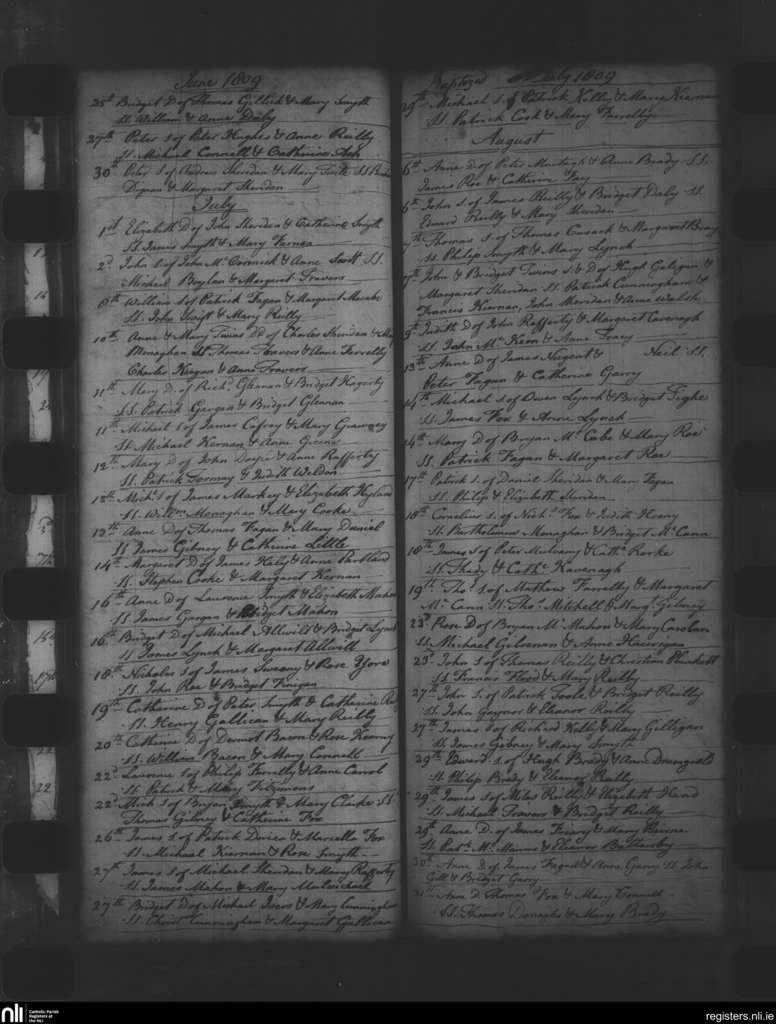 June 1809
25th Bridget D of Thomas Gillick & Mary Smyth
SS. William & Anne Daly
27th Peter S of Peter Hughes & Anne Reilly
SS. Michael Connell & Catherine Ash
30th Peter S of Andrew Sheridan & Mary SS
Dignan & Margaret Sheridan
July
1st Elizabeth D of John Sheridan & Catherine Smyth
SS. James Smyth & Mary Farnea
2d John S of John McCormick & Anne Scott SS.
Michael Boylan & Margaret Travers
9th William S of Patrick Fagan & Margaret
SS. John Swift & Mary Reilly
10th Anne & Mary Twins DD of Charles Sheridan & Mary
Monaghan SS Thomas Travers & Anne Farrelly
Charles Keegan & Anne Travers
11th Mary D. of Richd. Gleanan & Bridget Hagerty
SS. Patrick Gargan & Bridget Gleanan
11th Michael S of James Cafrey & Mary
SS. Michael Kernan & Anne Greene
12th Mary D of John & Anne Rafferty
SS. Patrick Tormay & Judith Weldon
12th Michl. S of James Markey & Elizabeth Hyland
SS. Willm. Monaghan & Mary Cooke
13th Anne D of Thomas Fagan & Mary Daniel
SS James Gibney & Catherine Little
14th Margaret D of James & Anne
SS. Stephen Cooke & Margaret Kernan
16th Anne D of Laurence Smyth & Elizabeth Mahon
SS. James Gargan & Bridget Mahon
16th Bridget D of Michael Allwill & Bridget Lynch
SS James Lynch & Margaret Allwill
18th Nicholas S of James Sweeny & Rose Yore
SS. John Rae & Bridget Finigan
19th Catherine D of Peter Smyth & Catherine
SS. Henry Gallican & Mary Reilly
20th Catherine D of Dermot Bacon & Rose Kearny
SS. William Bacon & Mary Connell
22d Laurence S of Philip Farrelly & Anne Carrol
SS. Patrick & Mary Fitzimons
22d Mich S of Bryan Smyth & Mary Clarke SS
Thomas Gibney & Catherine Fox
26th James S of Patrick & Marcella Fox
SS. Michael Kiernan & Rose Smyth
27th James S of Michael Sheridan & Mary Rafferty
SS. James Mahon & Mary Mulvichael
27th Bridget D of Michael Ivers & Mary Cunningham
SS. Christ Cunningham & Margaret
Baptized July 1809
29th Michael S of Patrick Kelly & Mary Kiernan
SS. Patrick Cook & Mary Farrelly
August
6th Anne D of Peter Murtagh & Anne Brady SS.
James Roe & Catherine Fay
6th John S. of James Reilly & Bridget Daly SS.
Edward Reilly & Mary Sheridan
7th Thomas S of Thomas Cusack & Margaret Bray
SS. Philip Smyth & Mary Lynch
7th John & Bridget Twins S & D of Hugh Galigan &
Margaret Sheridan SS Patrick Cunningham &
Francis Kiernan, John Sheridan & Anne Walsh
9th Judith D of John Rafferty & Margaret Cavenagh
SS. John McKeon & Anne Tracy
13th Anne D of James Nugent & Neil SS.
Peter Fagan & Catherine Garry
14th Michael S of Owen Lynch & Bridget Tighe
SS. James Fox & Anne Lynch
14th Mary D of Bryan McCabe & Mary Rae
SS. Patrick Fagan & Margaret Rae
17th Patrick S. of Daniel Sheridan & Mary Fagan
SS. Philip & Elizabeth Sheridan
18th Cornelius S. of Nichs. Fox & Judith Henry
SS. Bartholomew Monaghan & Bridget McCann
18th James S of Peter Mulvany & Cathe. Rorke
SS. Thady & Cathe. Kavenagh
19th Thos. S of Mathew Farrelly & Margaret
McCann SS. Thos. Mitchell & Margt. Gibney
23d Rose D of Bryan McMahon & Mary Carolan
SS. Michael Gilsenan & Anne Harrigan
23d John S of Thomas Reilly & Christian Plunkett
SS Francis Flood & Mary Reilly
27th John S. of Patrick Toole & Bridget Reilly
SS. John Gaynor & Eleanor Reilly
27th James S of Richard Kelly & Mary Gilligan
SS. James Gibney & Mary Smyth
29th Edward S. of Hugh Brady & Ann Drumgoold
SS. Philip Brady & Eleanor Reilly
29th James S of Miles Reilly & Elizabeth Hand
SS. Michael Travers & Bridget Reilly
29th Anne D. of James Friary & Mary Beirne
SS. Patk. McManus & Eleanor Battersby
30th Anne D of James Fagan & Anne Garry SS John
Gill & Bridget Garry
31st Anne D Thomas Fox & Mary Connell
SS. Thomas Donaghe & Mary Brady
nli Catholic Parish
Registers at
the NLI
registers.nli.ie